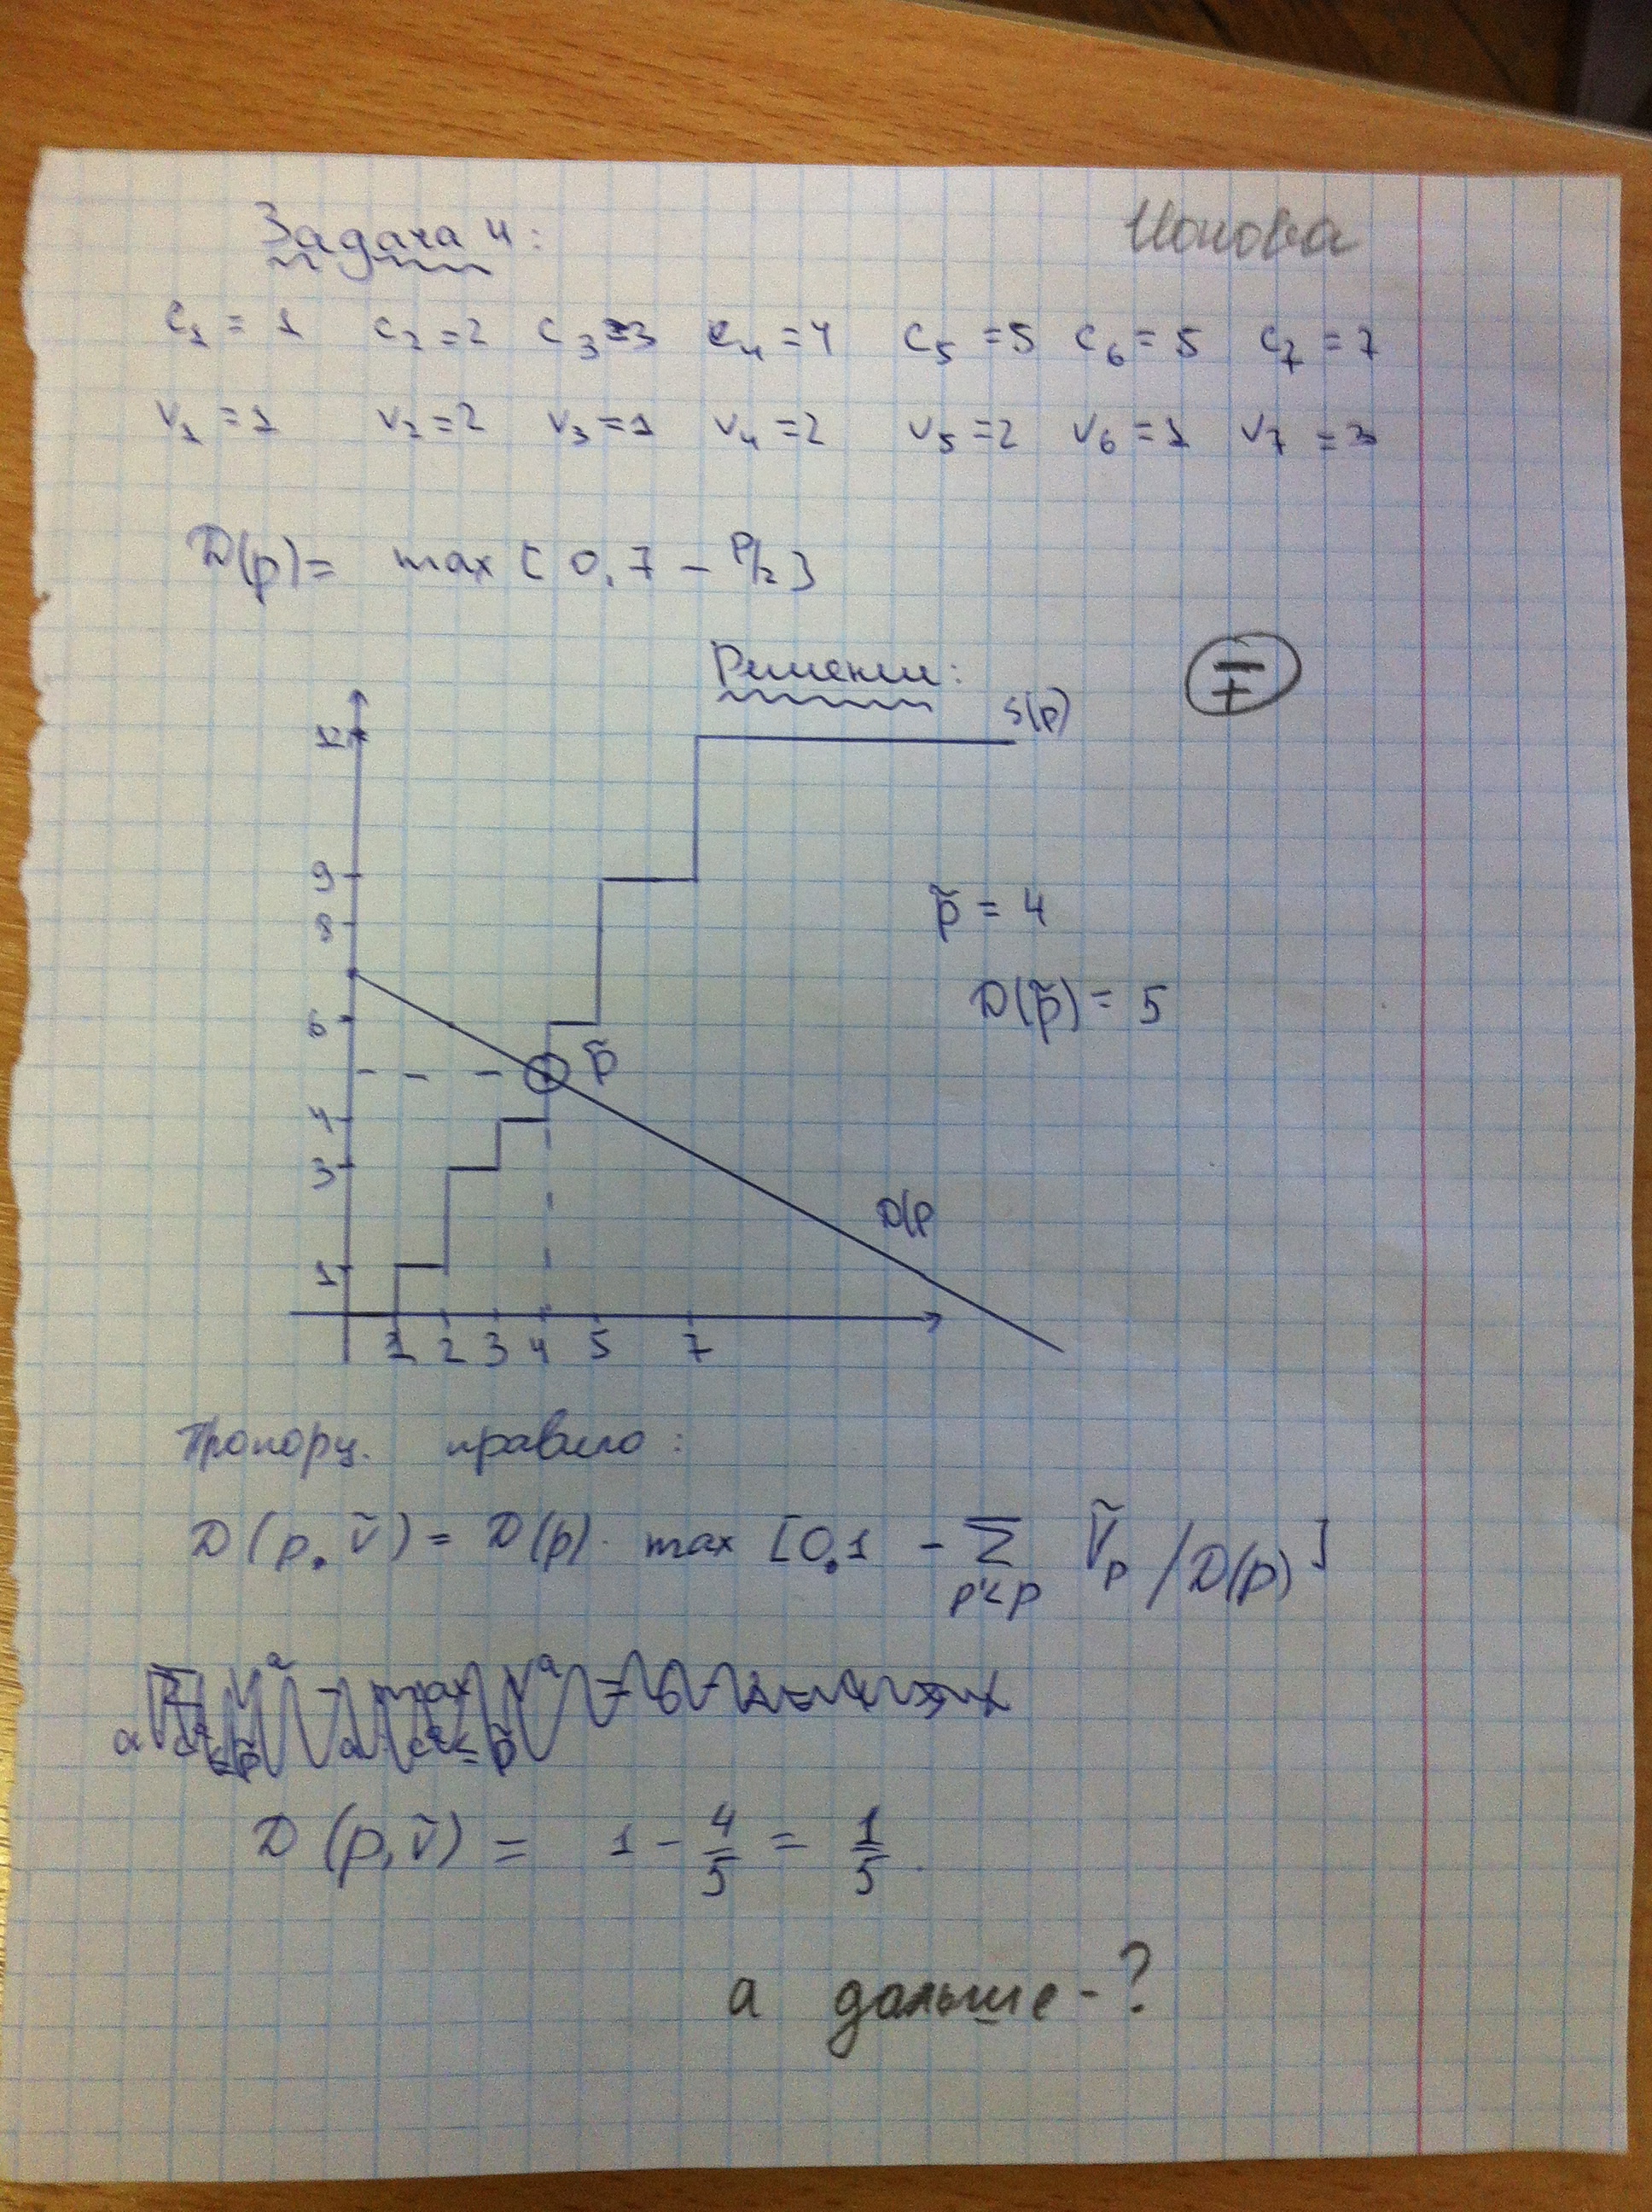 Задача 4:
c₁ = 1 c₂ = 2 c₃ = 3 c₄ = 4 c₅ = 5 c₆ = 5 c₇ = 7
v₁ = 1 v₂ = 2 v₃ = 1 v₄ = 2 v₅ = 2 v₆ = 1 v₇ = 3
D(p) = max [0, 7 - p/2]
Решение:
∓
S(p)
12
9
8
6
4
3
1
p̃
p̃ = 4
D(p̃) = 5
D(p
1 2 3 4 5 7
Пропорц. правило:
D(p, ṽ) = D(p) · max [0, 1 - Σ p'<p Ṽp / D(p)]
D(p, ṽ) = 1 - 4/5 = 1/5.
а дальше - ?